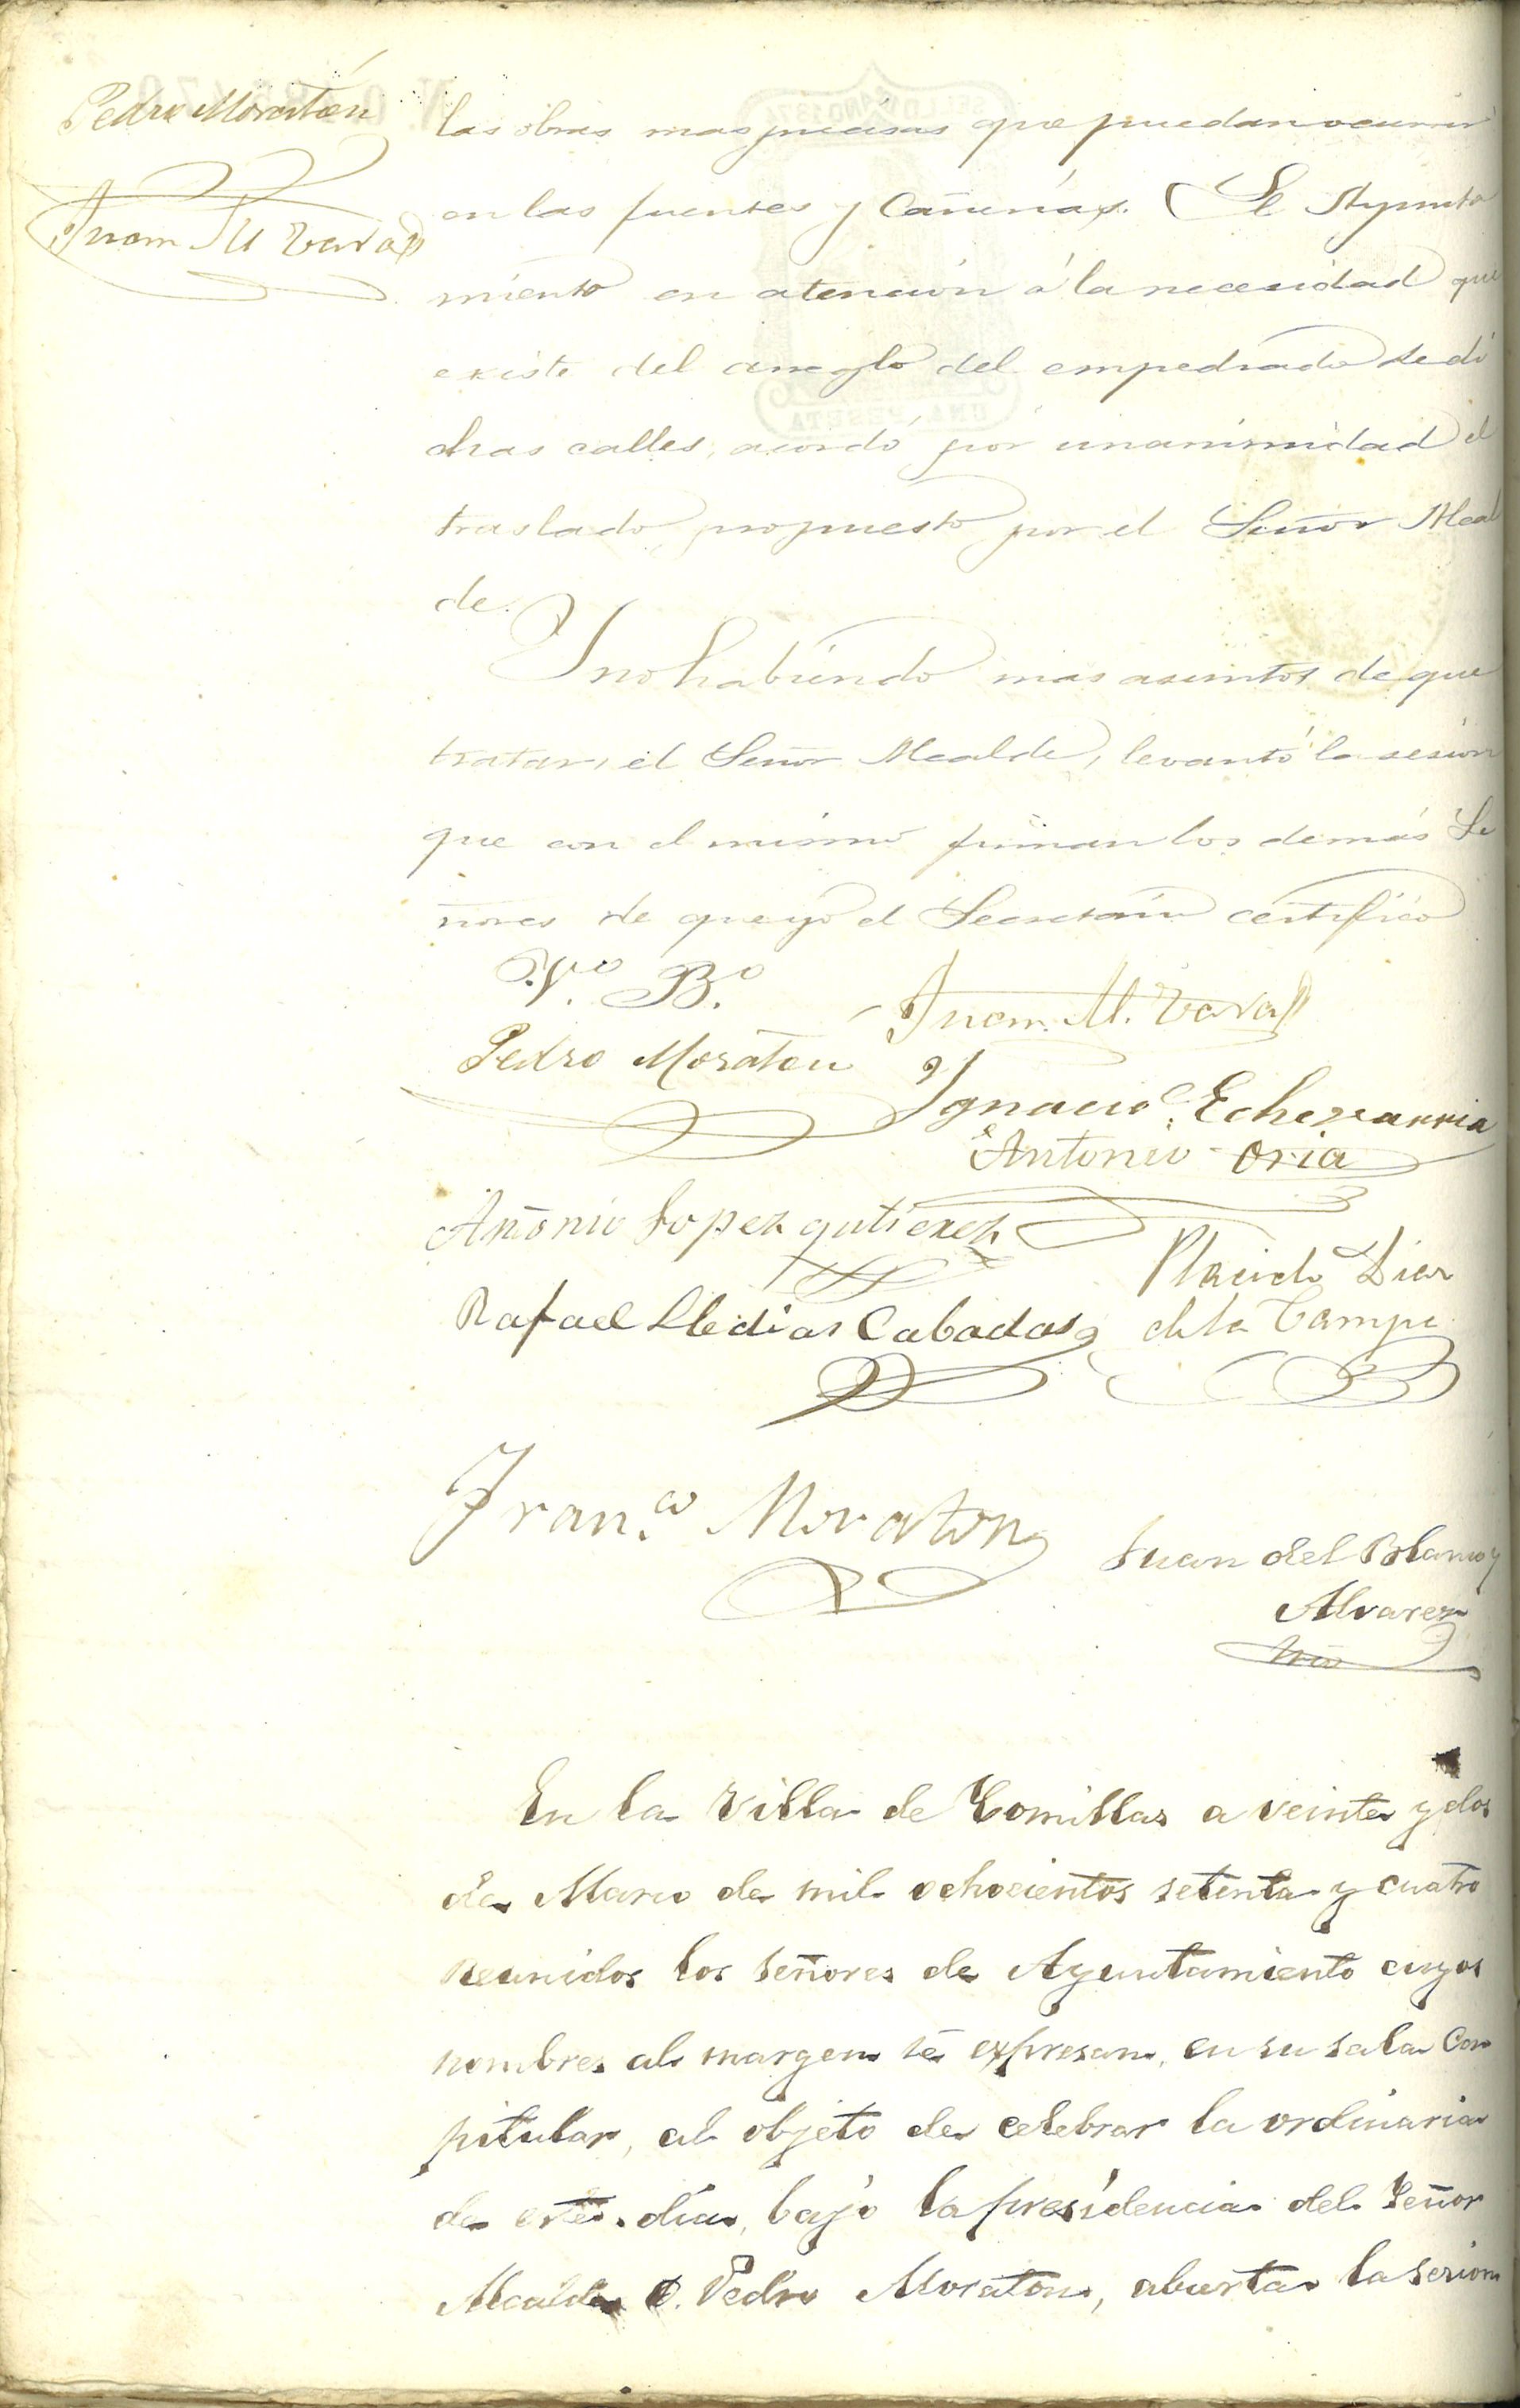 Pedro Moratón
Juan M Tara
las obras mas precisas que puedan ocurrir
en las fuentes y Cañerías. El Ayunta
miento en atención á la necesidad que
existe del arreglo del empedrado de di
chas calles, acordó por unanimidad el
traslado propuesto por el Señor Alcal
de.
Y no habiendo mas asuntos de que
tratar, el Señor Alcalde, levantó la sesión
que con el mismo firman los demás Se
ñores de que yo el Secretario certifico
V.º B.º
Juan M. Tara
Pedro Moraton
Ygnacio Echevarria
Antonio Oria
Antonio Lopez gutierez
Placido Diaz
Rafael Lledias Cabadas
de la Campa
Fran.co Moraton
Juan del Blanco y
Alvarez
Srio
En la Villa de Comillas a veinte y dos
de Marzo de mil ochocientos setenta y cuatro
reunidos los señores de Ayuntamiento cuyos
nombres al margen se expresan, en su sala Con
pitular, al objeto de celebrar la ordinaria
de este día, bajo la presidencia del Señor
Alcalde D. Pedro Moraton, abierta la sesion